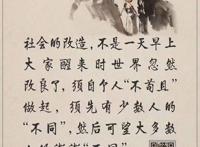 社会的改造，不是一天早上
大家醒来时世界忽然
改良了，须自个人“不苟且”
做起，须先有少数人的
“不同”，然后可望大多数